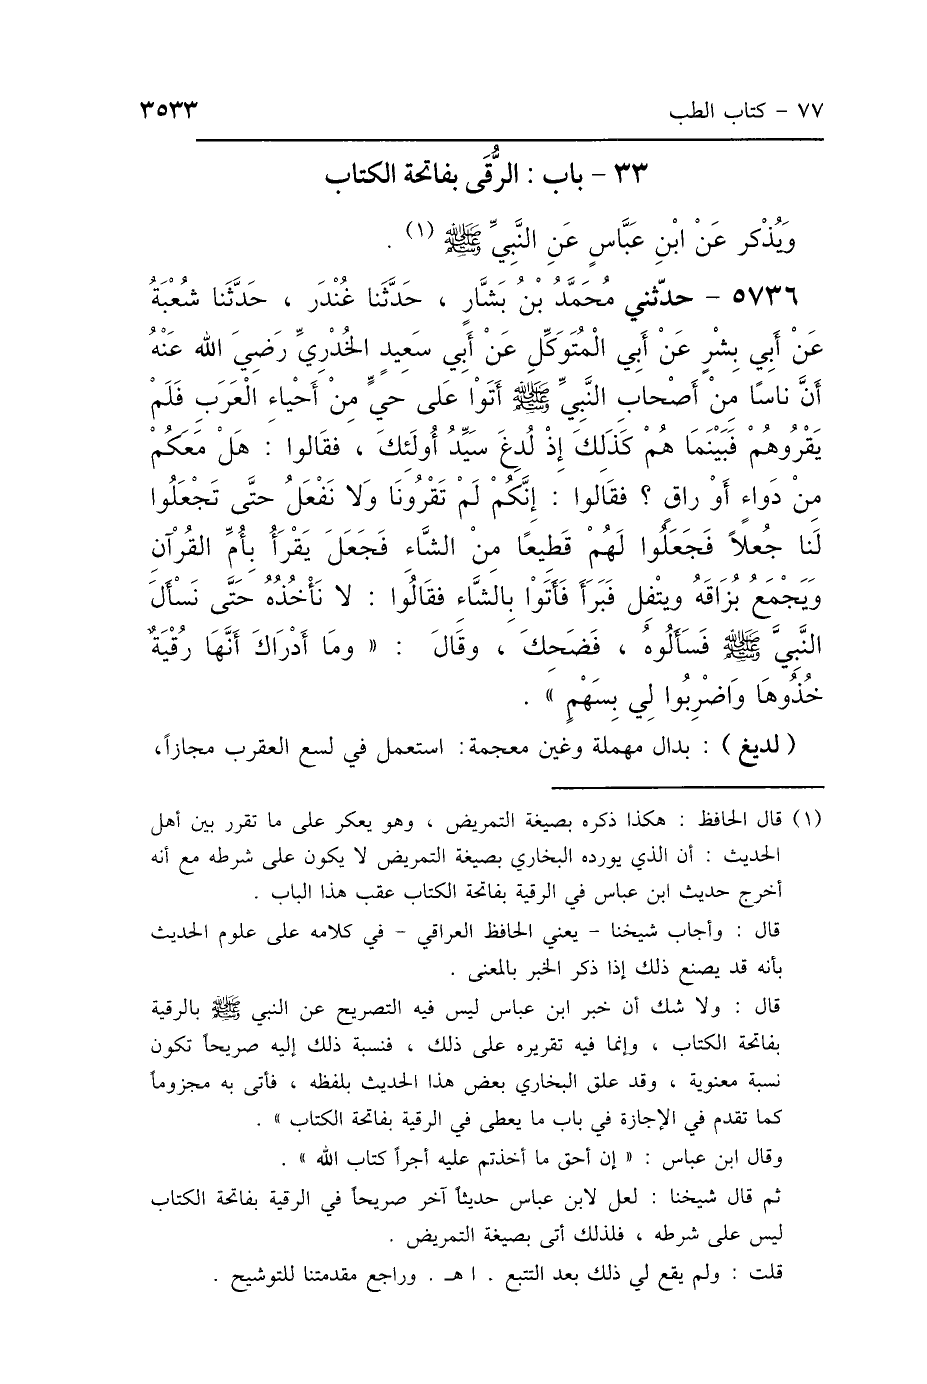 ٧٧ - كتاب الطب ٣٥٣٣
٣٣ - باب : الرُّقَى بفاتحة الكتاب
وَيُذْكر عَنْ ابْنِ عَبَّاسٍ عَنِ النَّبِيِّ ﷺ (١) .
٥٧٣٦ - حدّثني مُحَمَّدُ بْنُ بَشَّارٍ ، حَدَّثَنا غُنْدَر ، حَدَّثَنا شُعْبَةُ
عَنْ أَبِي بِشْرٍ عَنْ أَبِي الْمُتَوَكِّلِ عَنْ أَبِي سَعِيدٍ الخُدْرِيِّ رَضِيَ الله عَنْهُ
أَنَّ ناسًا مِنْ أَصْحابِ النَّبِيِّ ﷺ أَتَوْا عَلى حَيٍّ مِنْ أَحْياءِ الْعَرَبِ فَلَمْ
يَقْرُوهُمْ فَبَيْنَمَا هُمْ كَذَلِكَ إِذْ لُدِغَ سَيِّدُ أُولَئِكَ ، فقَالوا : هَلْ مَعَكُمْ
مِنْ دَواءٍ أَوْ راقٍ ؟ فقَالوا : إِنَّكُمْ لَمْ تَقْرُونَا وَلَا نَفْعَلُ حتَّى تَجْعَلُوا
لَنا جُعلاً فَجَعَلُوا لَهُمْ قَطِيعًا مِنْ الشَّاءِ فَجَعَلَ يَقْرَأُ بِأُمِّ القُرْآنِ
وَيَجْمَعُ بُزَاقَهُ ويتْفِل فَبَرَأَ فَأَتَوْا بِالشَّاءِ فقَالُوا : لا نَأْخُذُهُ حَتَّى نَسْأَلَ
النَّبِيَّ ﷺ فَسَأَلُوهُ ، فَضَحِكَ ، وقَالَ : « وما أَدْرَاكَ أَنَّهَا رُقْيَةٌ
خُذُوهَا وَاضْرِبُوا لِي بِسَهْمٍ » .
( لديغ ) : بدال مهملة وغين معجمة: استعمل في لسع العقرب مجازاً،
(١) قال الحافظ : هكذا ذكره بصيغة التمريض ، وهو يعكر على ما تقرر بين أهل
الحديث : أن الذي يورده البخاري بصيغة التمريض لا يكون على شرطه مع أنه
أخرج حديث ابن عباس في الرقية بفاتحة الكتاب عقب هذا الباب .
قال : وأجاب شيخنا - يعني الحافظ العراقي - في كلامه على علوم الحديث
بأنه قد يصنع ذلك إذا ذكر الخبر بالمعنى .
قال : ولا شك أن خبر ابن عباس ليس فيه التصريح عن النبي ﷺ بالرقية
بفاتحة الكتاب ، وإنما فيه تقريره على ذلك ، فنسبة ذلك إليه صريحاً تكون
نسبة معنوية ، وقد علق البخاري بعض هذا الحديث بلفظه ، فأتى به مجزوماً
كما تقدم في الإجازة في باب ما يعطى في الرقية بفاتحة الكتاب » .
وقال ابن عباس : « إن أحق ما أخذتم عليه أجراً كتاب الله » .
ثم قال شيخنا : لعل لابن عباس حديثاً آخر صريحاً في الرقية بفاتحة الكتاب
ليس على شرطه ، فلذلك أتى بصيغة التمريض .
قلت : ولم يقع لي ذلك بعد التتبع . ا هـ . وراجع مقدمتنا للتوشيح .